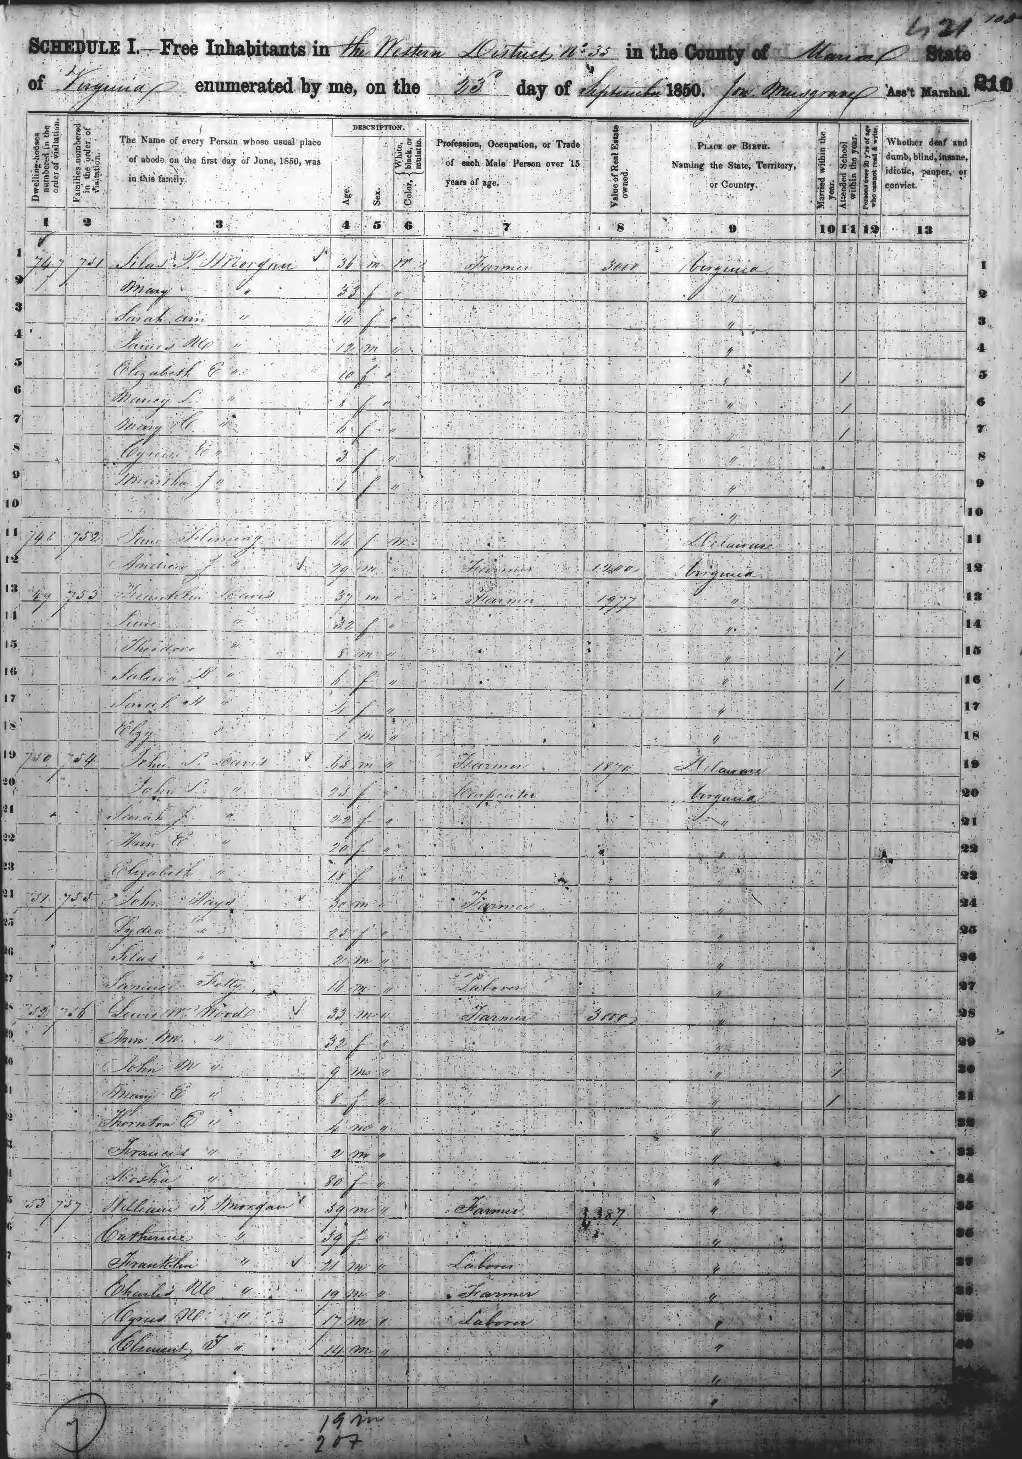 4 21
SCHEDULE I.—Free Inhabitants in the Western District, No 35 in the County of Marion State
of Virginia enumerated by me, on the 23d day of September 1850. Jon Musgrave Ass't Marshal. 210
Dwelling-houses numbered in the order of visitation.
Families numbered in the order of visitation.
The Name of every Person whose usual place of abode on the first day of June, 1850, was in this family.
DESCRIPTION.
Age.
Sex.
Color, White, black, or mulatto.
Profession, Occupation, or Trade of each Male Person over 15 years of age.
Value of Real Estate owned.
PLACE OF BIRTH. Naming the State, Territory, or Country.
Married within the year.
Attended School within the year.
Persons over 20 y'rs of age who cannot read & write.
Whether deaf and dumb, blind, insane, idiotic, pauper, or convict.
1 2 3 4 5 6 7 8 9 10 11 12 13
1 747 751 Silas Morgan 36 m W Farmer 3000 Virginia 1
2 Mary " 33 f " " 2
3 Sarah Ann " 14 f " " 3
4 James " 12 m " " 4
5 Elizabeth E " 10 f " " 1 5
6 Nancy " f " " 1 6
7 Mary C " 6 f " " 1 7
8 " 3 f " " 8
9 Martha J " 1 f " " 9
10 " 10
11 752 Jane Fleming 64 f W Delaware 11
12 Andrew J " 29 m " Farmer 1200 Virginia 12
13 753 Davis 37 m " Farmer 1977 " 13
14 " 32 f " " 14
15 Theodore " 8 m " " 1 15
16 " 6 f " " 1 16
17 Sarah " f " " 17
18 Elzy " 1 m " " 18
19 750 754 John S. Davis 65 m " Farmer Delaware 19
20 John S. " 25 f " Carpenter Virginia 20
21 Sarah J " 22 f " " 21
22 Ann E " 20 f " " 22
23 Elizabeth " 18 f " 23
24 751 755 John Hays 30 m " Farmer " 24
25 Lydia " 25 f " " 25
26 Silas " 2 m " " 26
27 16 m " Laborer " 27
28 752 756 Lewis W. Wood 33 m " Farmer 3000 " 28
29 Ann M. " 32 f " " 29
30 John M " 9 m " " 1 30
31 Mary E " 8 f " " 1 31
32 Thornton E " 4 m " " 32
33 Francis " 2 m " " 33
34 " 80 f " " 34
35 753 757 William F Morgan 39 m " Farmer 1387 " 35
36 Catherine " 39 f " " 36
37 Franklin " 21 m " Laborer " 37
38 Charles " 19 m " Farmer " 38
39 Cyrus " 17 m " Laborer " 39
40 Clement F " 14 m " " 40
"
"
19 m
20 f